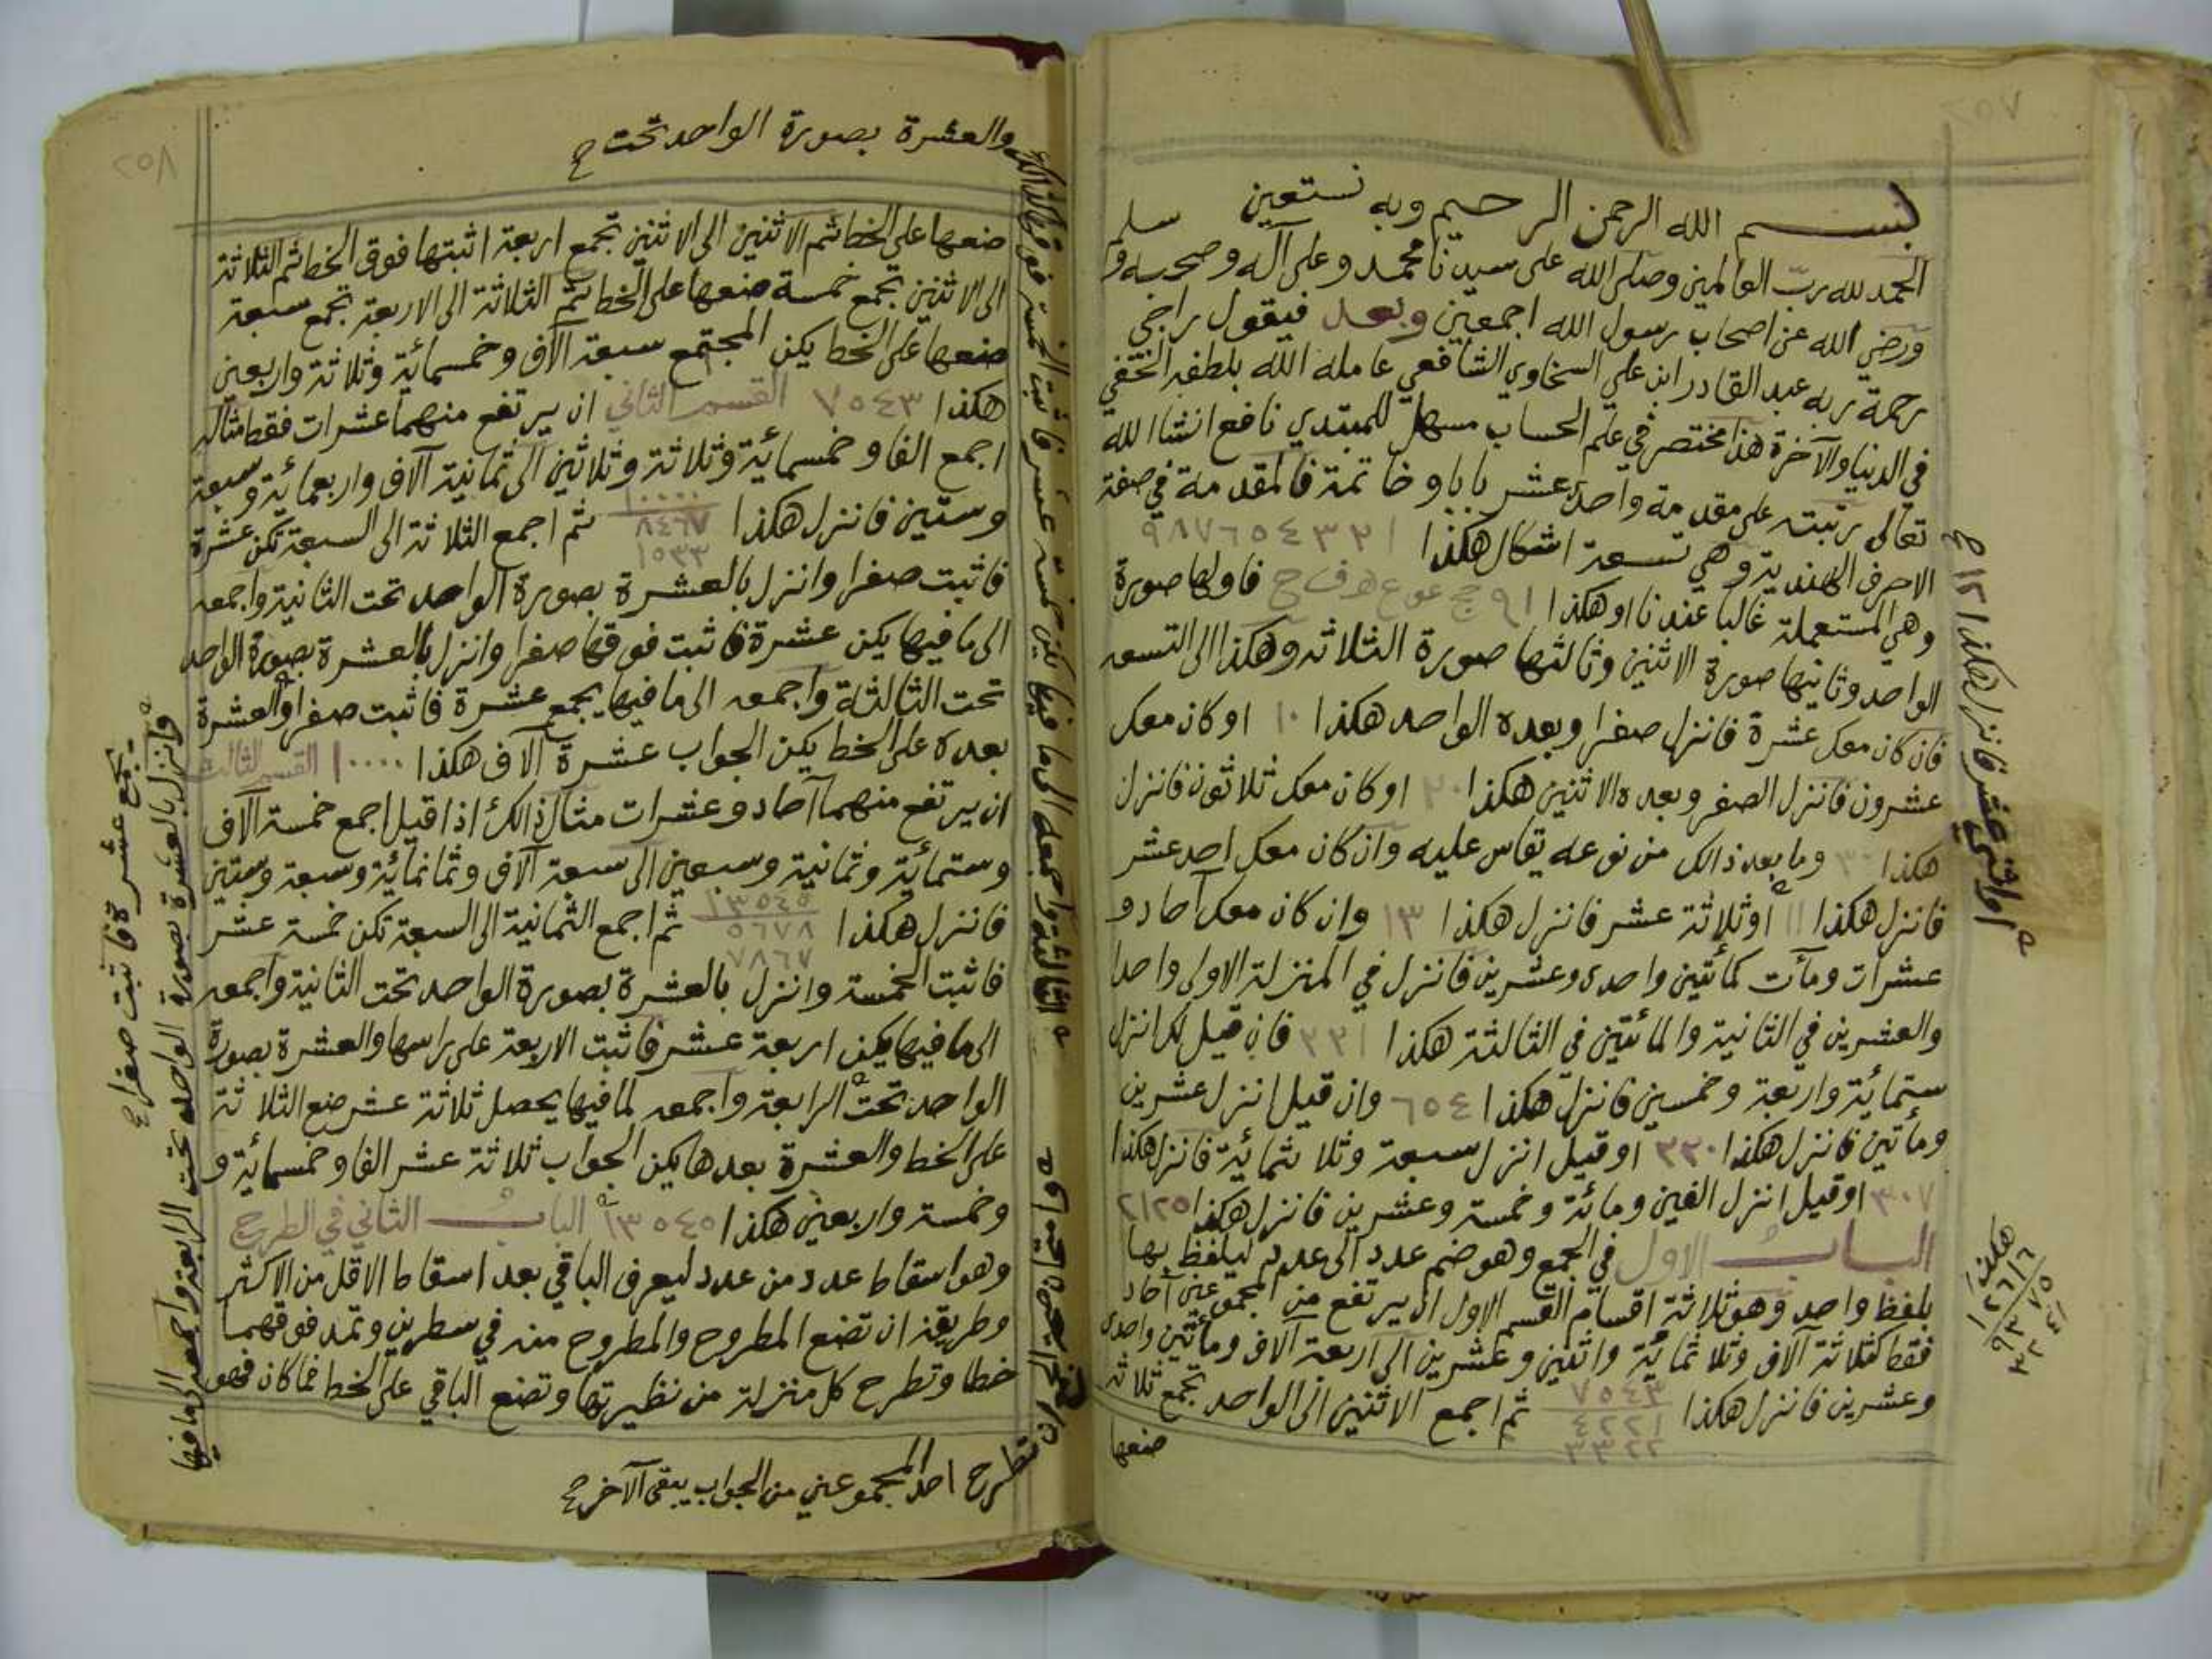 بسم الله الرحمن الرحيم وبه نستعين
الحمد لله رب العالمين وصلى الله على سيدنا محمد وعلى آله وصحبه وسلم
ورضي الله عن اصحاب رسول الله اجمعين وبعد فيقول راجي
رحمة ربه عبد القادر ابن علي السخاوي الشافعي عامله الله بلطفه الخفي
في الدنيا والآخرة هذا مختصر في علم الحساب مسهل للمبتدي نافع انشا الله
تعالى رتبته على مقدمة واحد عشر بابا وخاتمة فالمقدمة في صفة
الاحرف الهندية وهي تسعة اشكال هكذا ١ ٢ ٣ ٤ ٥ ٦ ٧ ٨ ٩
وهي المستعملة غالبا عندنا او هكذا فاولها صورة
الواحد وثانيها صورة الاثنين وثالثها صورة الثلاثه وهكذا الى التسعه
فان كان معك عشرة فانزل صفرا وبعده الواحد هكذا ١٠ او كان معك
عشرون فانزل الصفر وبعده الاثنين هكذا ٢٠ او كان معك ثلاثون فانزل
هكذا ٣٠ وما بعد ذالك من نوعه يقاس عليه وان كان معك احد عشر
فانزل هكذا ١١ او ثلاثة عشر فانزل هكذا ١٣ وان كان معك آحاد و
عشرات ومآت كمائتين واحدى وعشرين فانزل في المنزلة الاولى واحدا
والعشرين في الثانية والمائتين في الثالثة هكذا ٢٢١ فان قيل لك انزل
ستمائة واربعة وخمسين فانزل هكذا ٦٥٤ وان قيل انزل عشرين
ومأتين فانزل هكذا ٢٢٠ او قيل انزل سبعة وثلاثمائة فانزل هكذا
٣٠٧ او قيل انزل الفين ومائة وخمسة وعشرين فانزل هكذا ٢١٢٥
الباب الاول في الجمع وهو ضم عدد الى عدد ليلفظ بها
بلفظ واحد وهو ثلاثة اقسام القسم الاول ان يرتفع من المجموعين آحاد
فقط كثلاثة آلاف وثلاثمائة واثنين وعشرين الى اربعة آلاف ومأتين واحدى
وعشرين فانزل هكذا ٧٥٤٣ ٤٢٢١ ٣٣٢٢ ثم اجمع الاثنين الى الواحد تجمع ثلاثة
ضعها
او اثني عشر فانزل هكذا ١٢ صح
هكذا
١٢٦١٦
٩٣٧٥
٣٢٤١
والعشرة بصورة الواحد تحت صح
ضعها على الخط ثم الاثنين الى الاثنين تجمع اربعة اثبتها فوق الخط ثم الثلاثة
الى الاثنين تجمع خمسة ضعها على الخط ثم الثلاثة الى الاربعة تجمع سبعة
ضعها على الخط يكن المجتمع سبعة آلاف وخمسمائة وثلاثة واربعين
هكذا ٧٥٤٣ القسم الثاني ان يرتفع منهما عشرات فقط مثاله
اجمع الفا وخمسمائة وثلاثة وثلاثين الى ثمانية آلاف واربعمائة وسبعة
وستين فانزل هكذا ١٠٠٠٠ ٨٤٦٧ ١٥٣٣ ثم اجمع الثلاثة الى السبعة تكن عشرة
فاثبت صفرا وانزل بالعشرة بصورة الواحد تحت الثانية واجمعه
الى ما فيها يكن عشرة فاثبت فوقها صفرا وانزل بالعشرة بصورة الواحد
تحت الثالثة واجمعه الى ما فيها يجمع عشرة فاثبت صفرا والعشرة
بعده على الخط يكن الجواب عشرة آلاف هكذا ١٠٠٠٠ القسم الثالث
ان يرتفع منهما آحاد وعشرات مثال ذالك اذا قيل اجمع خمسة آلاف
وستمائة وثمانية وسبعين الى سبعة آلاف وثمانمائة وسبعة وستين
فانزل هكذا ١٣٥٤٥ ٥٦٧٨ ٧٨٦٧ ثم اجمع الثمانية الى السبعة تكن خمسة عشر
فاثبت الخمسة وانزل بالعشرة بصورة الواحد تحت الثانية واجمعه
الى ما فيها يكن اربعة عشر فاثبت الاربعة على راسها والعشرة بصورة
الواحد تحت الرابعة واجمعه لما فيها يحصل ثلاثة عشر ضع الثلاثة
على الخط والعشرة بعدها يكن الجواب ثلاثة عشر الفا وخمسمائة و
وخمسة واربعين هكذا ١٣٥٤٥ الباب الثاني في الطرح
وهو اسقاط عدد من عدد ليعرف الباقي بعد اسقاط الاقل من الاكثر
وطريقه ان تضع المطروح والمطروح منه في سطرين وتمد فوقهما
خطا وتطرح كل منزلة من نظيرتها وتضع الباقي على الخط فما كان فهو
تطرح احد المجموعين من الجواب يبقى الآخر صح
وانزل بالعشرة بصورة الواحد تحت الرابعة واجمعه الى ما فيها
يجمع عشرة فاثبت صفرا صح
الثالثة واجمعه الى ما فيها يكن خمسة عشر فاثبت الخمسة فوق